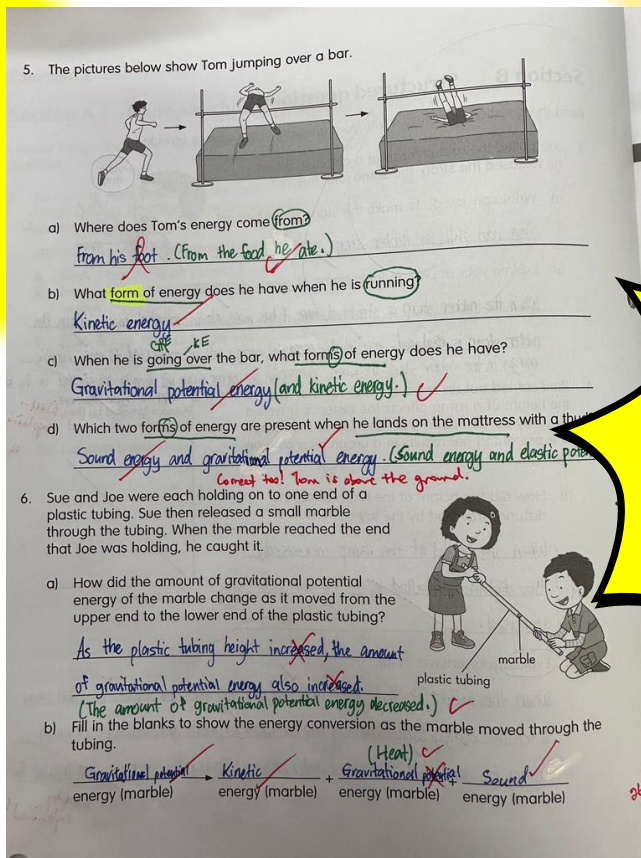 5. The pictures below show Tom jumping over a bar.
a) Where does Tom's energy come from?
From his foot. (From the food he ate.)
b) What form of energy does he have when he is running?
Kinetic energy
GPE KE
c) When he is going over the bar, what forms of energy does he have?
Gravitational potential energy (and kinetic energy.)
d) Which two forms of energy are present when he lands on the mattress with a thud
Sound energy and gravitational potential energy. (Sound energy and elastic poten
Correct too! Tom is above the ground.
6. Sue and Joe were each holding on to one end of a
plastic tubing. Sue then released a small marble
through the tubing. When the marble reached the end
that Joe was holding, he caught it.
a) How did the amount of gravitational potential
energy of the marble change as it moved from the
upper end to the lower end of the plastic tubing?
As the plastic tubing height increased, the amount
of gravitational potential energy also increased.
(The amount of gravitational potential energy decreased.)
marble
plastic tubing
b) Fill in the blanks to show the energy conversion as the marble moved through the
tubing.
(Heat)
Gravitational potential Kinetic + Gravitational potential + Sound
energy (marble) energy (marble) energy (marble) energy (marble)